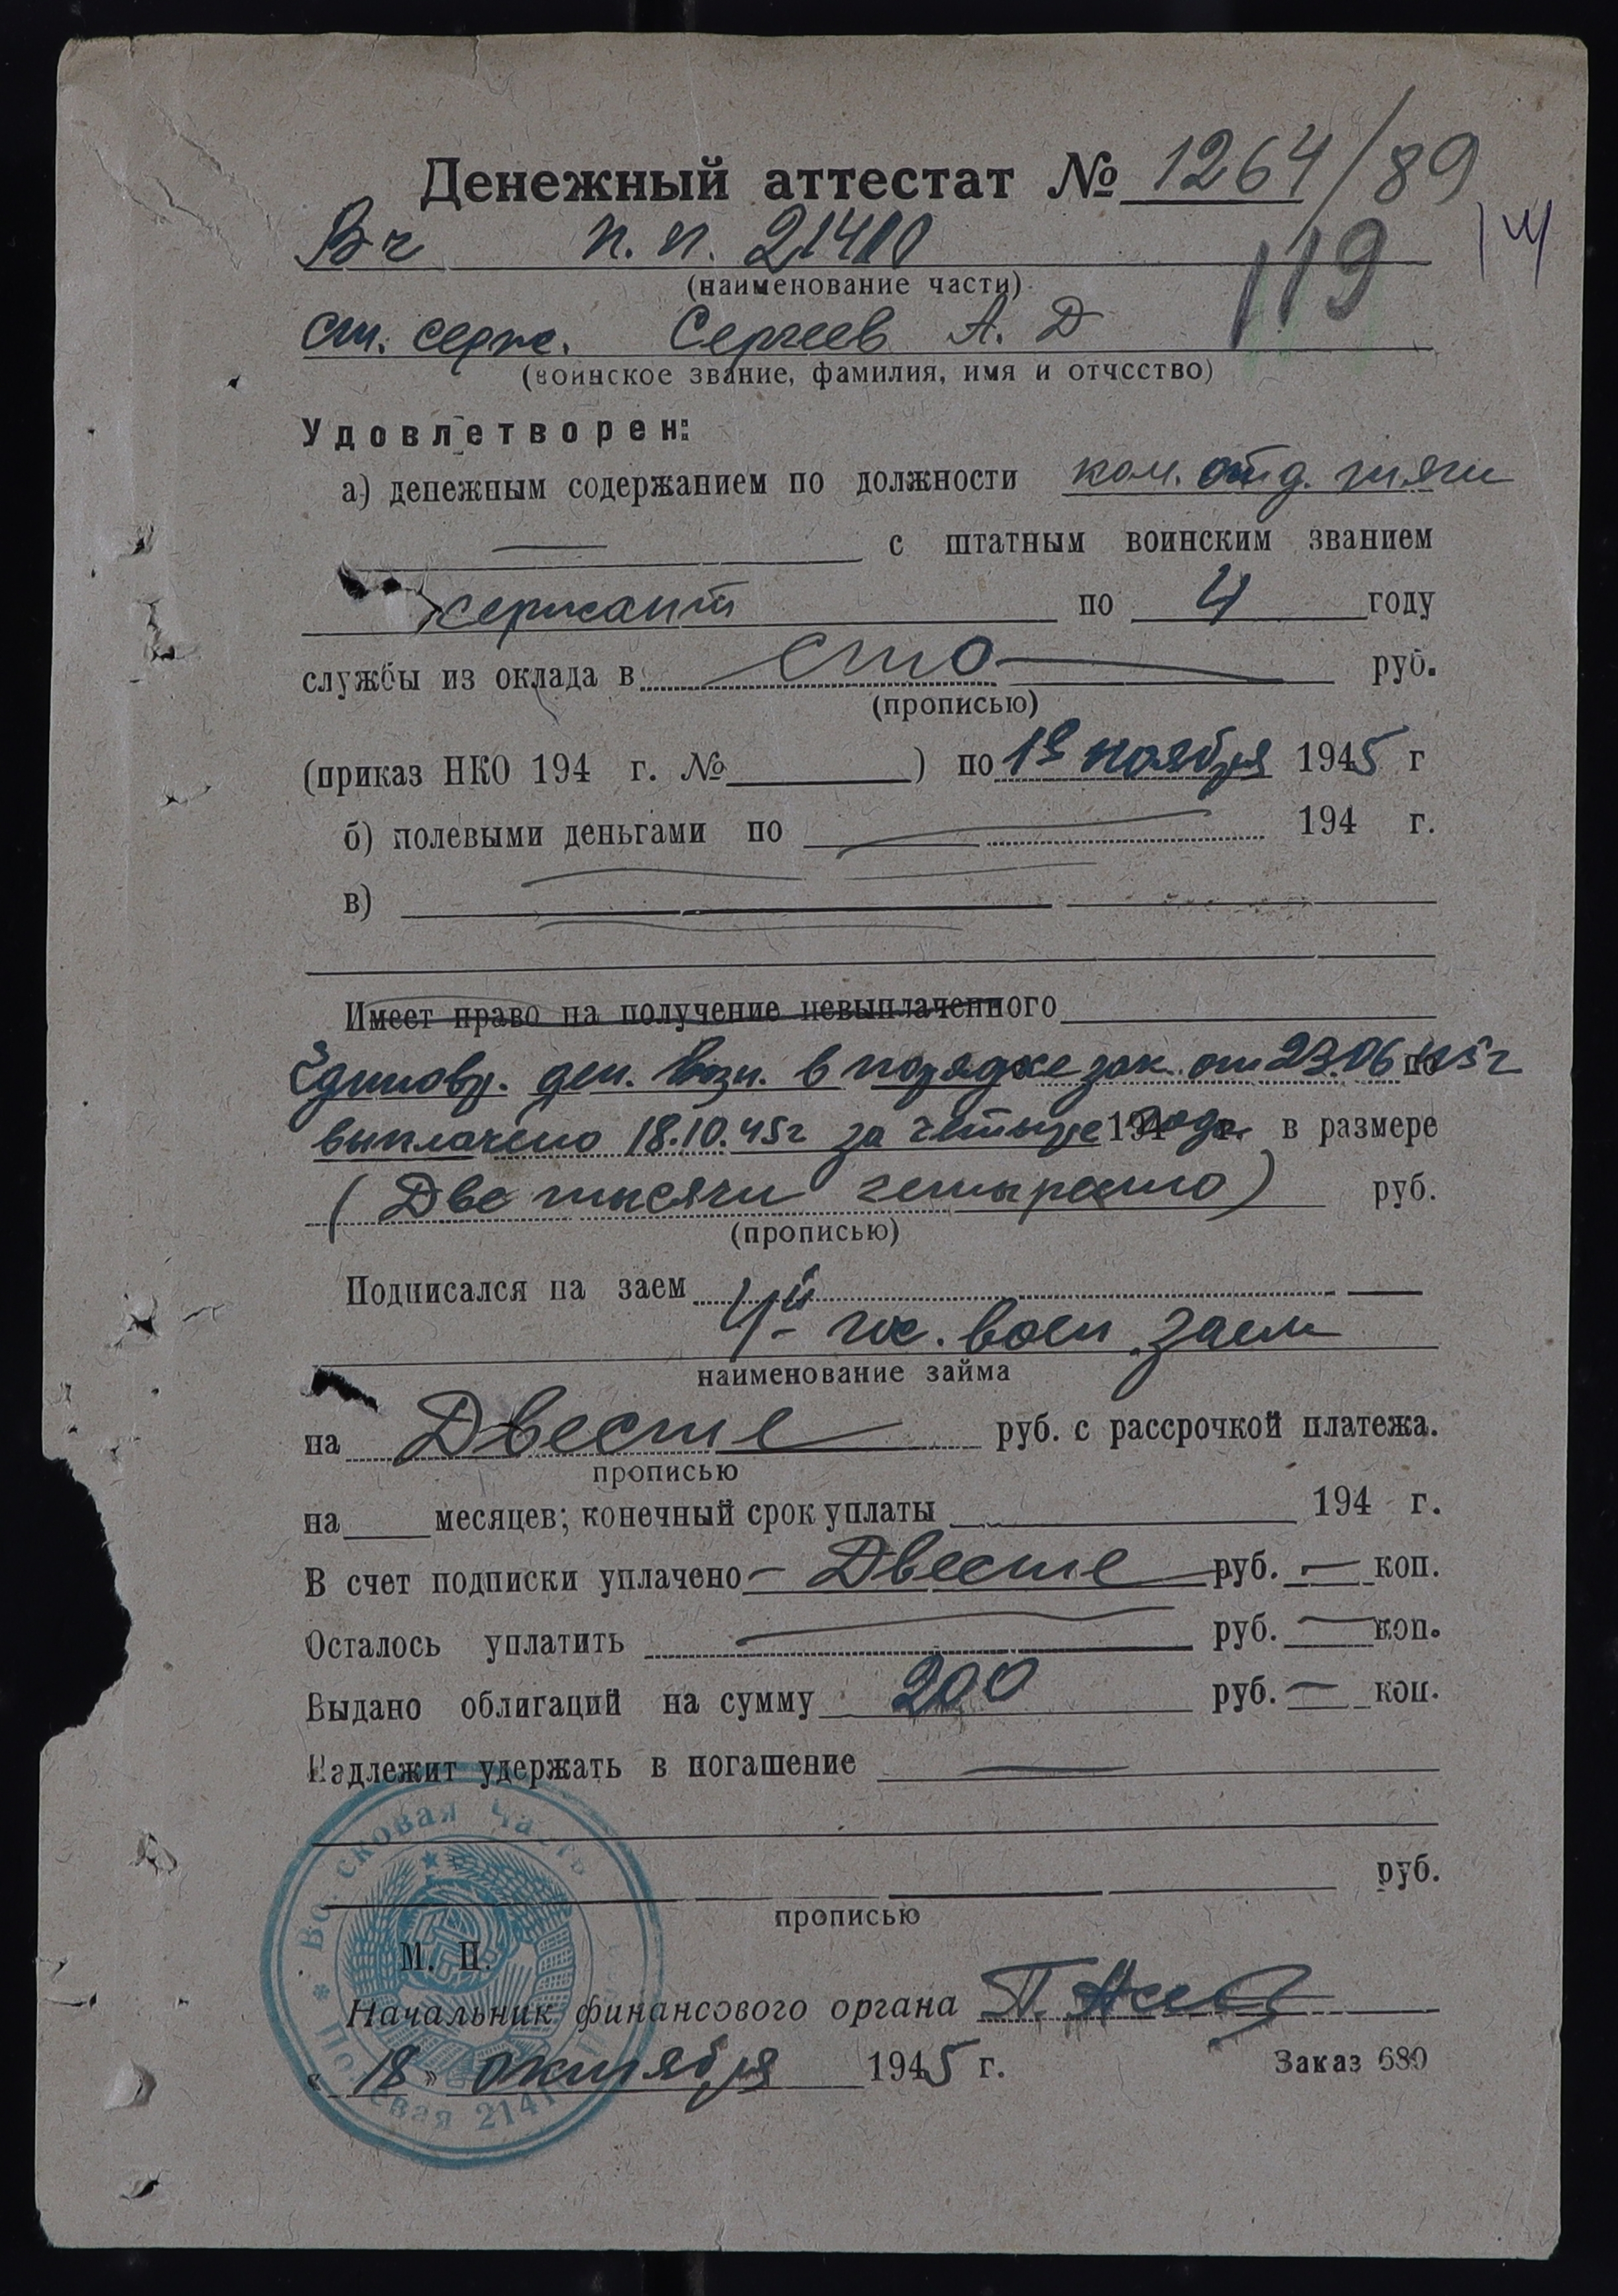 Денежный аттестат № 1264/89
Вч п. п. 21410
(наименование части)
119
ст. серж. Сергеев А. Д
(воинское звание, фамилия, имя и отчсство)
Удовлетворен:
а) денежным содержанием по должности ком. отд. тяги
— с штатным воинским званием
сержант по 4 году
службы из оклада в сто руб.
(прописью)
(приказ НКО 194 г. № ) по 1е ноября 1945 г
б) полевыми деньгами по — 194 г.
в)
Имеет право на получение невыплаченного
Единовр. ден. возн. в порядке зак. от 23.06 45 г
выплачено 18.10.45г за четыре года 194 г. в размере
(Две тысячи четыреста) руб.
(прописью)
Подписался на заем
4й гос. воен заем
наименование займа
на Двести руб. с рассрочкой платежа.
прописью
на месяцев; конечный срок уплаты 194 г.
В счет подписки уплачено – Двести руб. — коп.
Осталось уплатить — руб. — коп.
Выдано облигаций на сумму 200 руб. — коп.
Надлежит удержать в погашение —
руб.
прописью
М. П.
Начальник финансового органа
«18» октября 1945 г.
Заказ 680
Войсковая часть
Полевая 2141